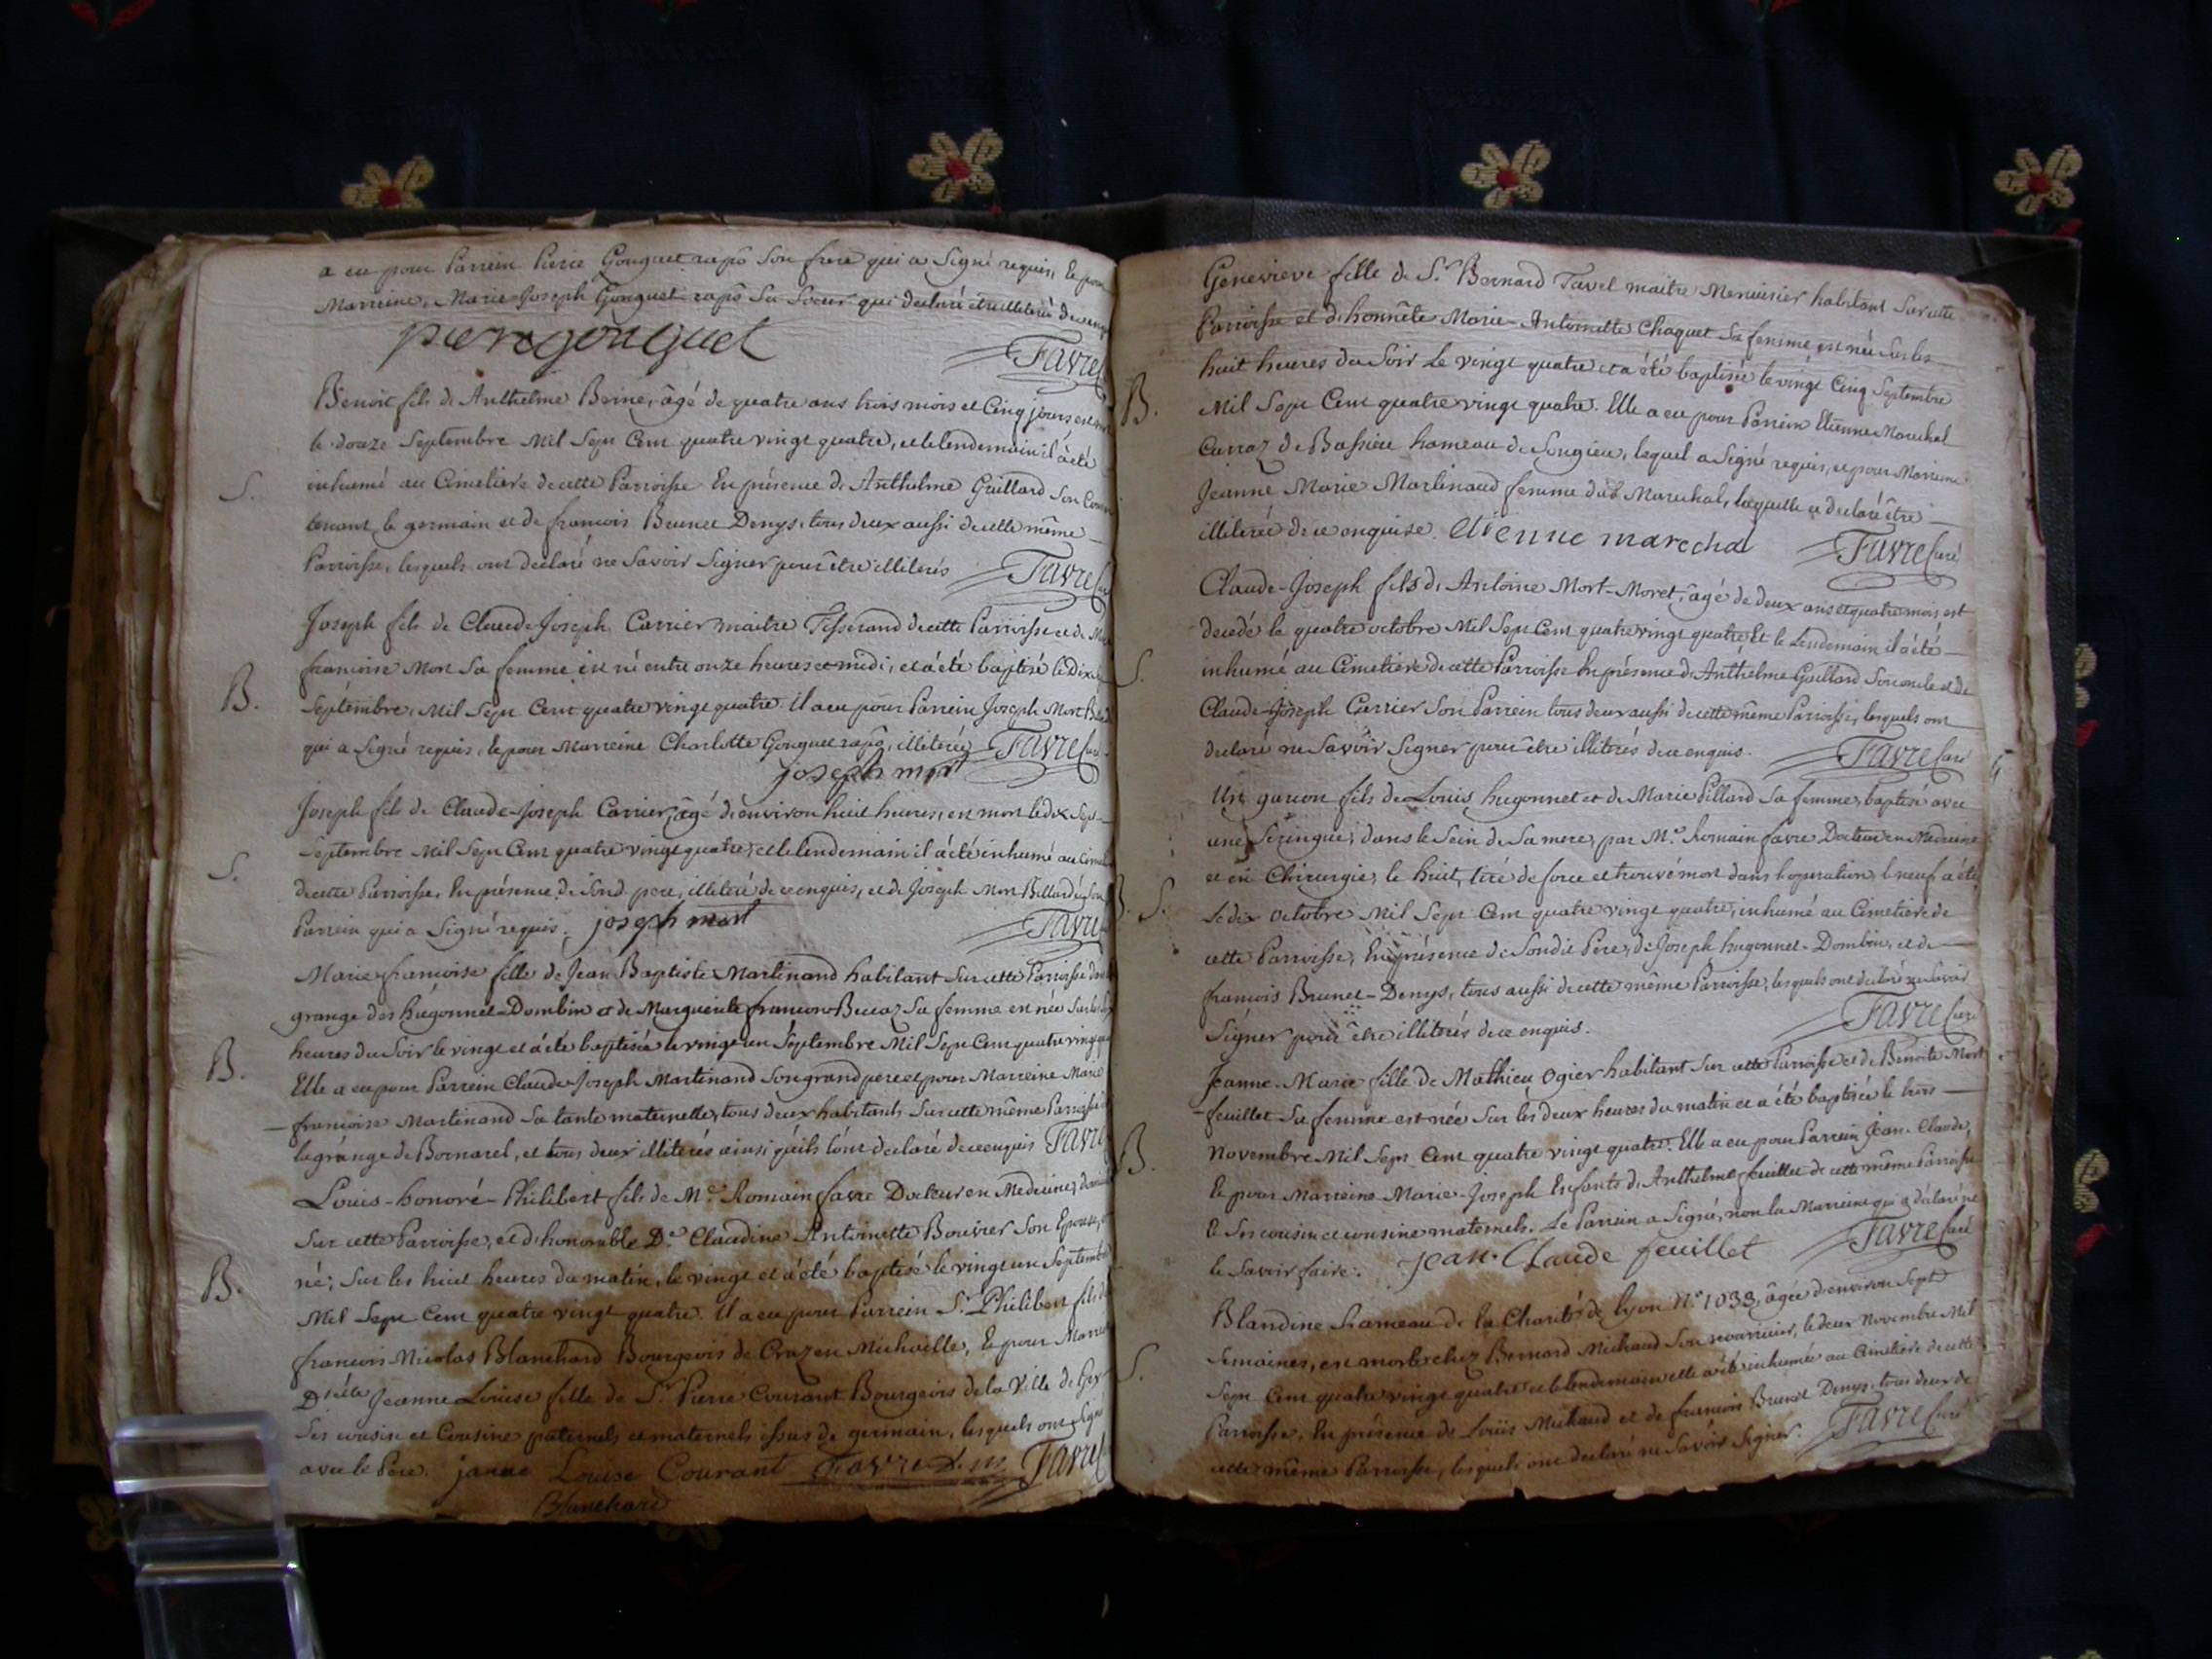 a eu pour Parrein Pierre Gonguet rapô Son frere qui a Signé requis, Et pour
Marreine, Marie-Joseph Gonguet rapô Sa Sœur qui declaré être illiterée de ce enq
pierre gonguet
Favre
Benoit fils de Anthelme Berne, âgé de quatre ans trois mois et Cinq jours est mort
le douze Septembre Mil Sept Cent quatre vingt quatre, et le lendemain il a été
S.
inhumé au Cimetiere de cette Parroisse En présence de Anthelme Guillard Son
tenant le germain et de francois Brunet Denys, tous deux aussi de cette même
Parroisse, lesquels ont declaré ne Savoir Signer pour être illiterés
Favre Cur
Joseph fils de Claude-Joseph Carrier maitre Tisserand de cette Parroisse et de
francoise Mort Sa femme est né entre onze heures et midi, et a été baptisé le Dix
B.
Septembre, Mil Sept Cent quatre vingt quatre. Il a eu pour Parrein Joseph Mort
qui a Signé requis, Et pour Marreine Charlotte Gonguet rapô, illiterée Favre Cur
joseph mort
Joseph fils de Claude-Joseph Carrier, âgé d'environ huit heures, est mort le dix Sept
Septembre Mil Sept Cent quatre vingt quatre, et le lendemain il a été inhumé au Cimet
S.
de cette Parroisse, En présence de Sond. pere, illiteré de ce enquis, et de Joseph Mort Billard
Parrein qui a Signé requis. joseph mort
Favre
Marie francoise fille de Jean Baptiste Martinand habitant Sur cette Parroisse
grange des hugonnet-Dombin et de Marguerite francon Sa femme est née Sur les
heures du Soir le vingt et a été baptisée le vingt un Septembre Mil Sept Cent quatre vingt
B.
Elle a eu pour Parrein Claude-Joseph Martinand Son grand pere et pour Marreine Marie
francoise Martinand Sa tante maternelle, tous deux habitants Sur cette même Parroisse
la grange de Bornarel, et tous deux illiterés ainsi qu'ils l'ont declaré de ce enquis Favre
Louis-honoré-Philibert fils de Me. Romain favre Docteur en Medecine,
Sur cette Parroisse, et d'honorable De. Claudine Antoinette Bouvier Son Epouse, est
B.
né, Sur les huit heures du matin, le vingt et a été baptisé le vingt un Septembre
Mil Sept Cent quatre vingt quatre. Il a eu pour Parrein Sr. Philibert fils de
francois-Nicolas Blanchard Bourgeois de Craz en Michaille, Et pour Marre
Dlle Jeanne Louise fille de Sr. Pierre Courant Bourgeois de la Ville de Gex
Ses cousin et Cousine paternels et maternels issus de germain, lesquels ont Signé
avec le Pere. janne Louise Courant Favre Favre
Blanchard
Genevieve fille de Sr. Bernard Tavel maitre Menuisier habitant Sur cette
Parroisse et d'honnête Marie-Antoinette Chaquet Sa femme, est née Sur les
huit heures du Soir Le vingt quatre et a été baptisée le vingt Cinq Septembre
B.
Mil Sept Cent quatre vingt quatre. Elle a eu pour Parrein Etienne Marechal
Curraz de Bassieu hameau de Songieu, lequel a Signé requis, et pour Marreine
Jeanne Marie Martinaud femme dud. Marechal, laquelle a declaré être
illiterée de ce enquise. etienne marechal
Favre Curé
Claude-Joseph fils de Antoine Mort-Moret, âgé de deux ans et quatre mois, est
decedé le quatre octobre Mil Sept Cent quatre vingt quatre Et le Lendemain il a été
S.
inhumé au Cimetiere de cette Parroisse En présence de Anthelme Gaillard Son oncle et de
Claude-Joseph Carrier Son Parrein tous deux aussi de cette même Parroisse, lesquels ont
declaré ne Savoir Signer pour être illiterés de ce enquis.
Favre Curé
Un garcon fils de Louis hugonnet et de Marie Pillard Sa femme, baptisé avec
une Seringue, dans le Sein de Sa mere, par Me. Romain favre Docteur en Medecine
et en Chirurgie, le huit, tiré de force et trouvé mort dans l'operation, le neuf a été
B. S.
Le dix octobre Mil Sept Cent quatre vingt quatre, inhumé au Cimetiere de
cette Parroisse, En présence de Sondit Pere, de Joseph hugonnet-Dombin, et de
francois Brunet-Denys, tous aussi de cette même Parroisse, lesquels ont declaré ne Savoir
Signer pour être illiterés de ce enquis.
Favre Curé
Jeanne-Marie fille de Mathieu Ogier habitant Sur cette Parroisse et de Benoite Mort
feuillet Sa femme est née Sur les deux heures du matin et a été baptisée le trois
B.
Novembre Mil Sept Cent quatre vingt quatre. Elle a eu pour Parrein Jean-Claude,
Et pour Marreine Marie-Joseph Enfants de Anthelme feuillet de cette même Parroisse
Et Ses cousin et cousine maternels. Le Parrein a Signé, non la Marreine qui a declaré ne
le Savoir faire. Jean-Claude feuillet
Favre Curé
Blandine Rameau de la Charité de Lyon N.° 1033, âgée d'environ Sept
Semaines, est morte chez Bernard Michaud Son nourricier, le deux Novembre Mil
S.
Sept Cent quatre vingt quatre et le lendemain elle a été inhumée au Cimetiere de cette
Parroisse, En présence de Louis Michaud et de francois Brunet Denys, tous deux de
cette même Parroisse, lesquels ont declaré ne Savoir Signer. Favre Curé